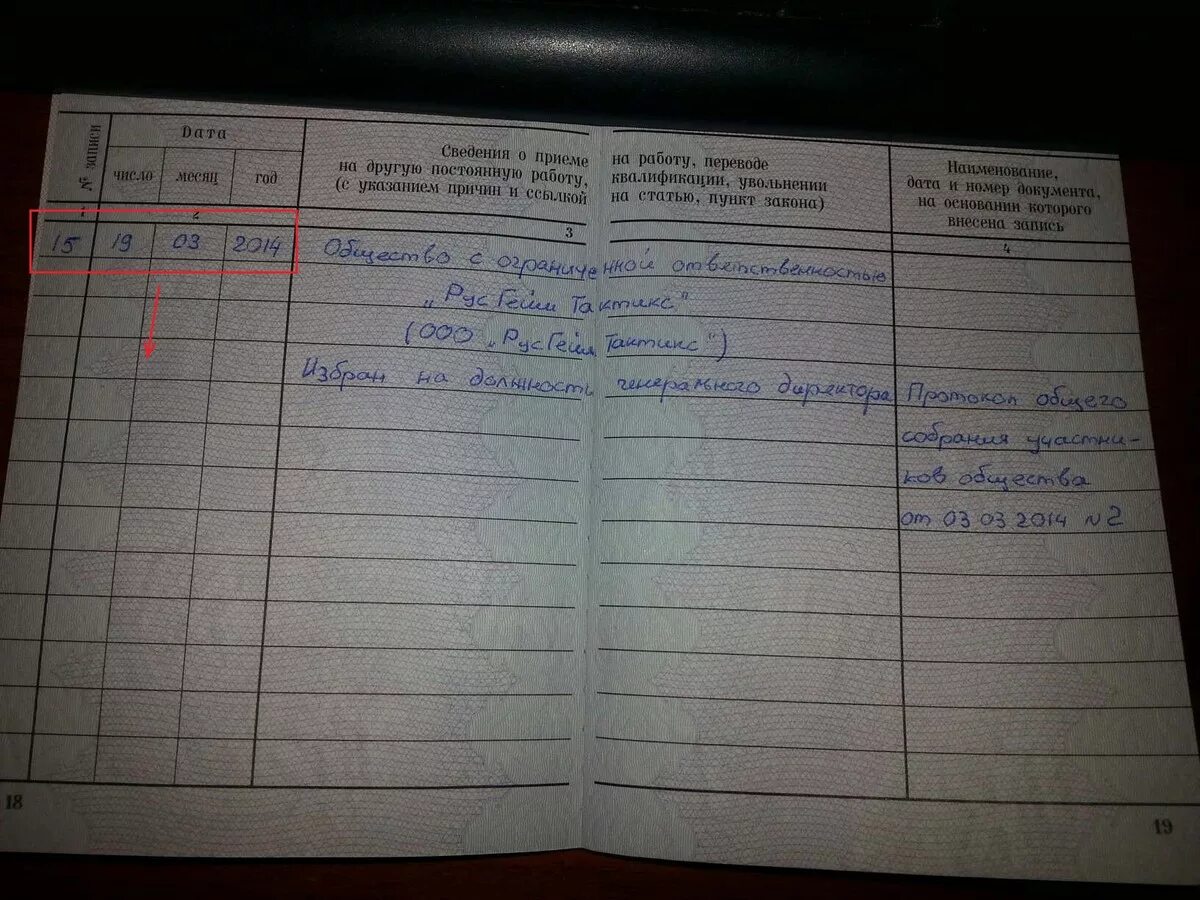 № записи
Дата
число месяц год
Сведения о приеме
на другую постоянную работу,
(с указанием причин и ссылкой
на работу, переводе
квалификации, увольнении
на статью, пункт закона)
Наименование,
дата и номер документа,
на основании которого
внесена запись
1 2 3 4
15 19 03 2014 Общество с ограниченной ответственностью
„РусГейм Тактикс"
(ООО „РусГейм Тактикс")
Избран на должность генерального директора Протокол общего
собрания участни-
ков общества
от 03 03 2014 №2
18
19